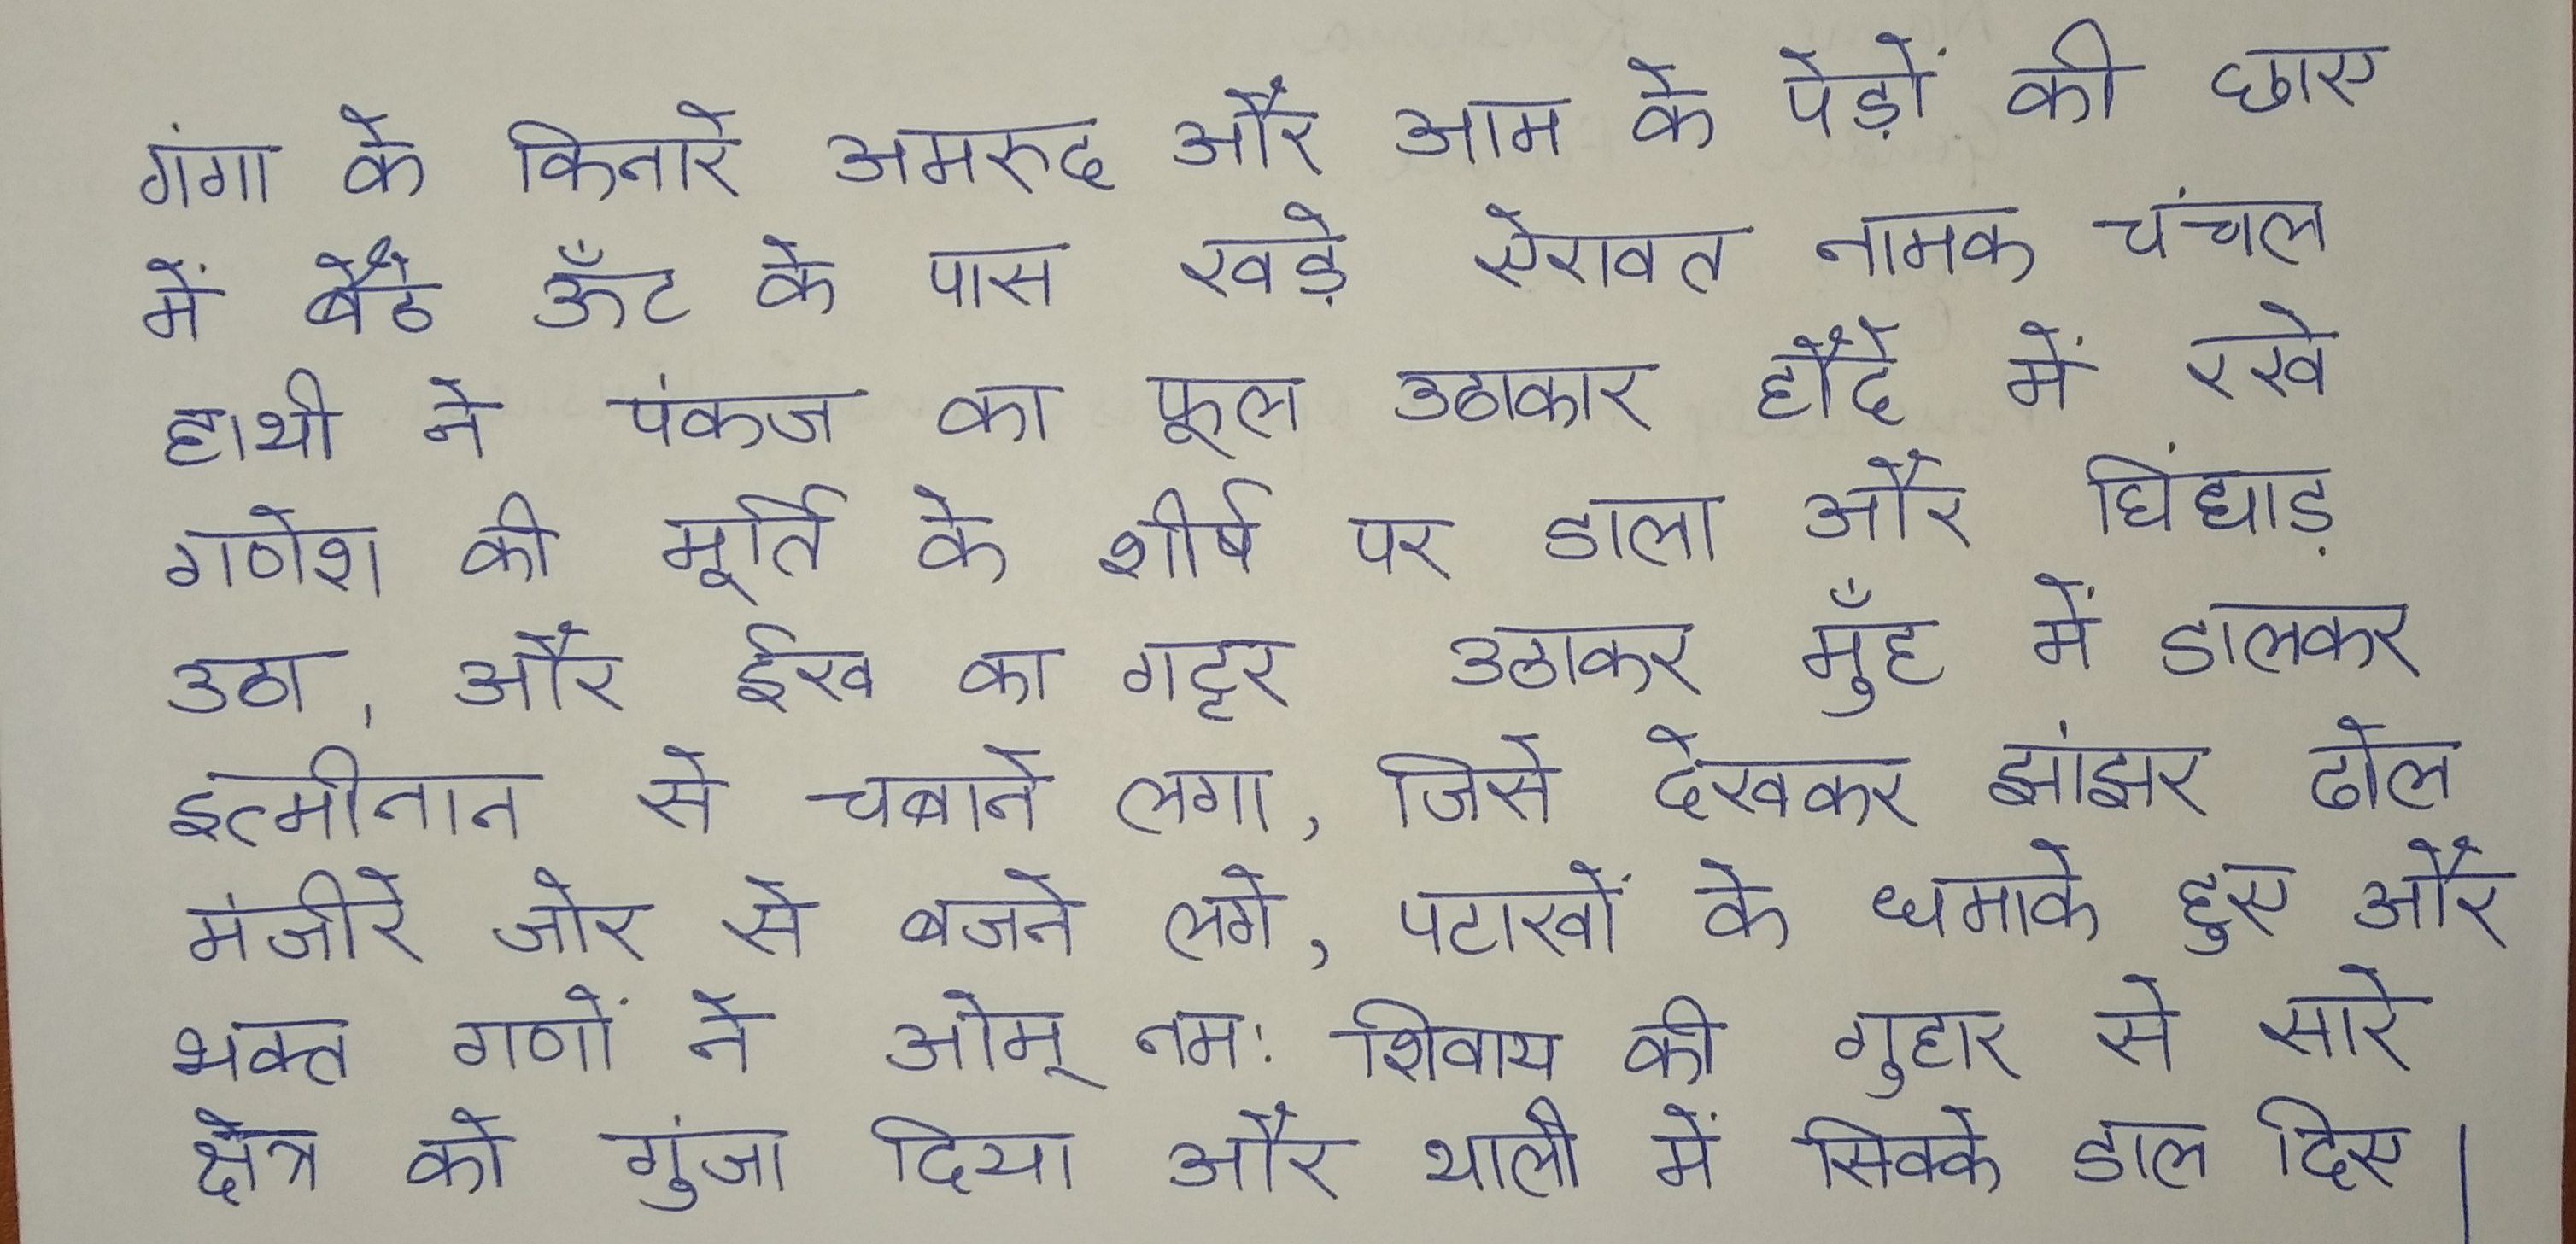 गंगा के किनारे अमरुद और आम के पेड़ों की छाए
में बैठे ऊँट के पास खड़े ऐरावत नामक चंचल
हाथी ने पंकज का फूल उठाकार हौदे में रखे
गणेश की मूर्ति के शीर्ष पर डाला और घिंघाड़
उठा, और ईख का गट्टर उठाकर मुँह में डालकर
इत्मीनान से चबाने लगा, जिसे देखकर झांझर ढोल
मंजीरे जोर से बजने लगे, पटाखों के धमाके हुए और
भक्त गणों ने ओम् नमः शिवाय की गुहार से सारे
क्षेत्र को गुंजा दिया और थाली में सिक्के डाल दिए।